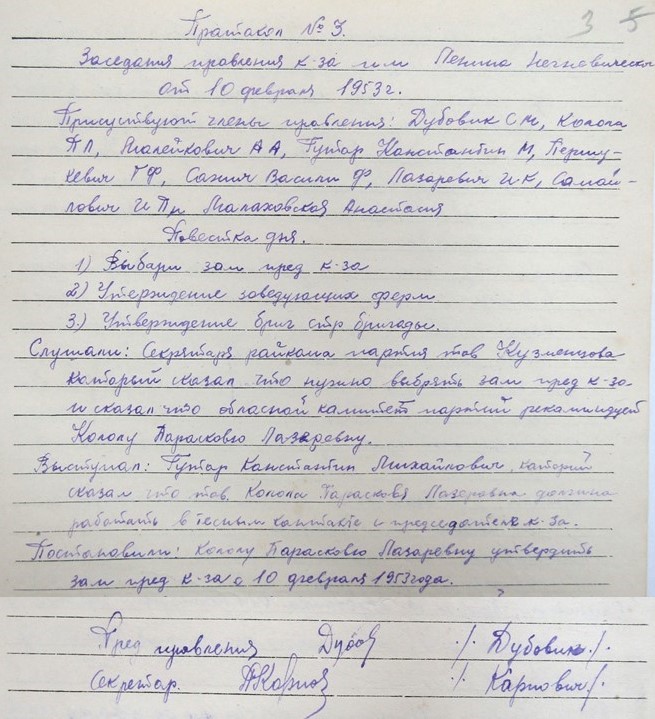 3 5
Пратакол № 3.
Заседания правления к-за им Ленина
от 10 февраля 1953 г.
Присуствуют члены правления: Дубовик С М, Колола
П Л, Малейкович А А, Гутар Канстантин М, Першу-
кевич Г Ф, Сахич Васили Ф, Лазаревич И К, Самай-
лович И П, Малаховская Анастасия
Повестка дня.
1) Выбари зам пред к-за
2) Утерждение заведующих ферм
3.) Утверждение бриг стр бригады.
Слушали: Секрятаря райкама партия тов Кузменцова
каторый сказал что нужно выбрять зам пред к-за
и сказал что обласной камитет партий рекамендует
Кололу Парасковю Лазаревну.
Выступал: Гутар Канстантин Михайлович, каторый
сказал что тов. Колола Парасковя Лазаровна должна
работать в тесным контакте с председателе к-за.
Постановили: Кололу Парасковю Лазаревну утвердить
зам пред к-за с 10 февраля 1953 года.
Пред правления Дубов ./. Дубовик ./.
Секретар. ./. Карпович /.